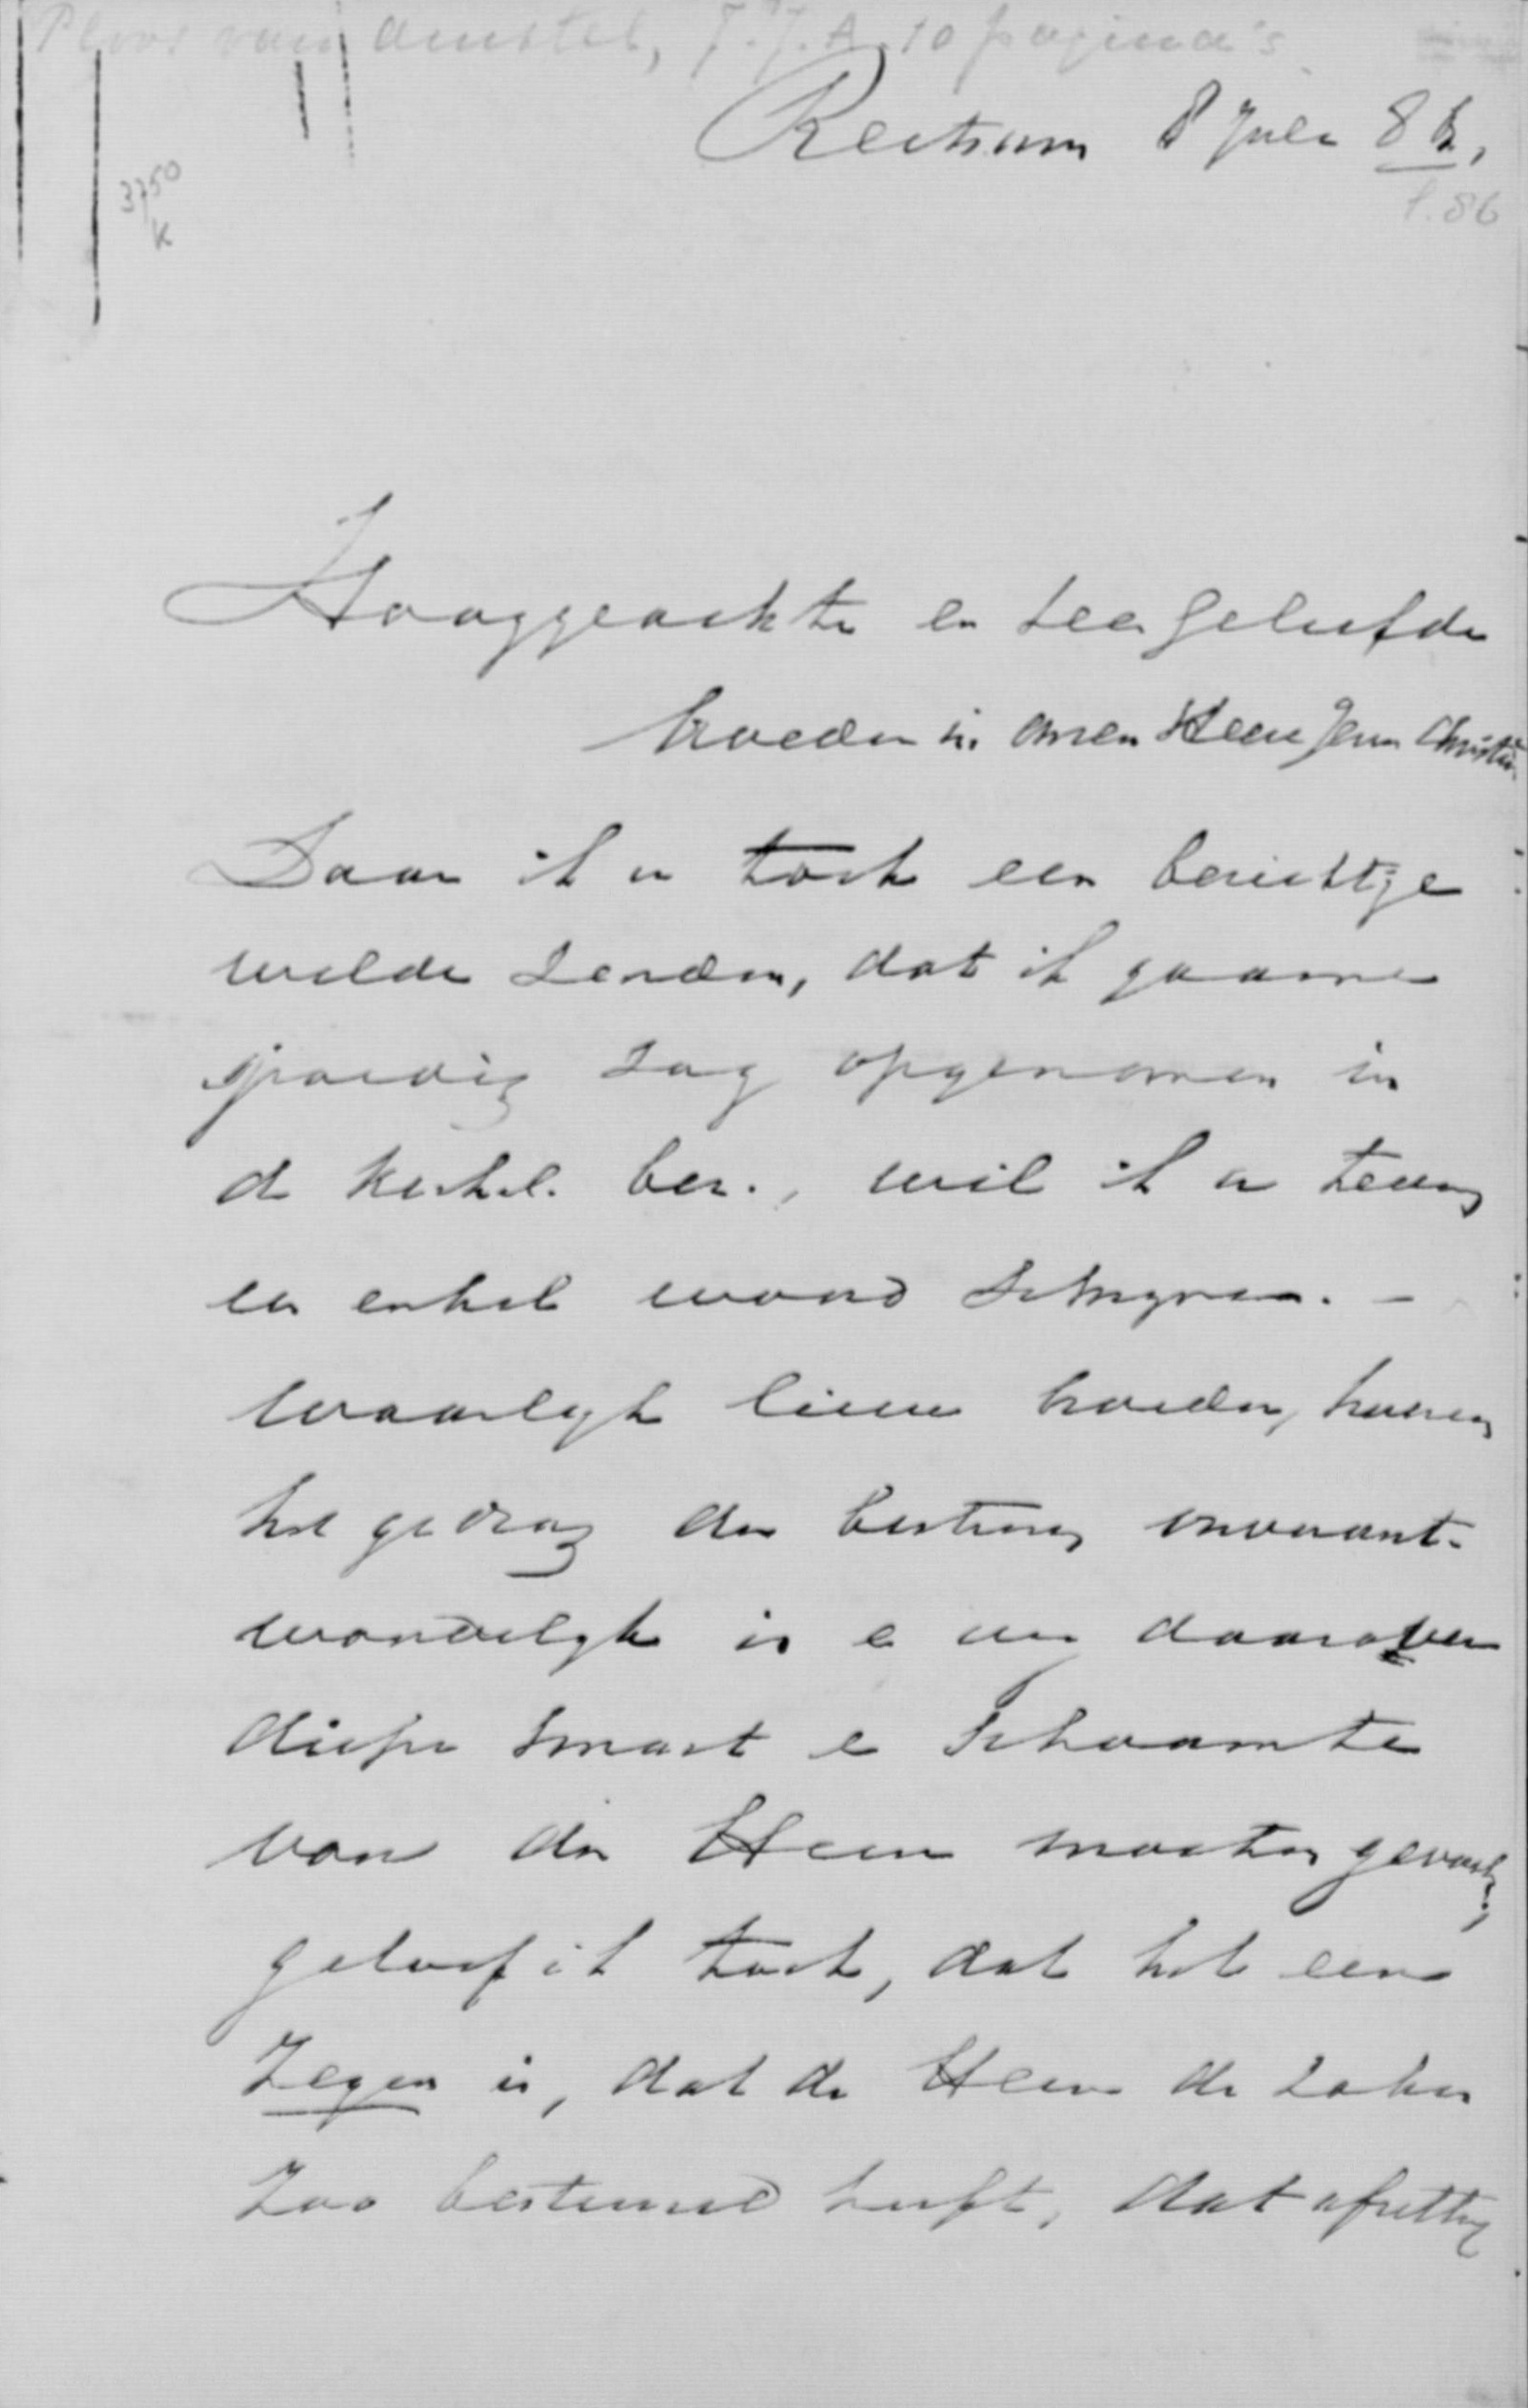 Ploos van Amstel, J.J.A. 10 pagina's
Reitsum 8 Juli 86,
3750
K
f. 86
Hooggeachte en zeer geliefde
broeder in onzen Heere Jezus Christus
Daar ik u toch een berichtje
wilde zenden, dat ik gaarne
spoedig zag opgenomen in
de Kerkel. ber., wil ik u tevens
een enkel woord schrijven. -
Waarlijk lieve broeder, hoezeer
het gedrag der besturen onverant-
woordelijk is en wij daarover
diepe smart en schaamte
voor den Heere moeten gevoelen;
geloof ik toch, dat het een
Zegen is, dat de Heere de zaken
zoo bestuurd heeft, dat afzetting